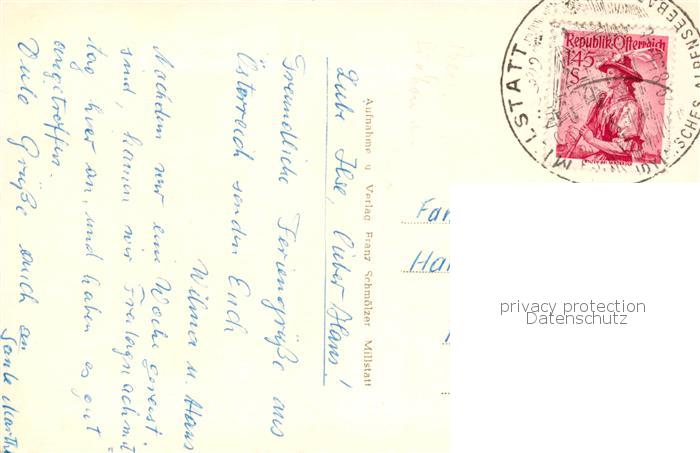 Liebe Ilse, lieber Hans!
Freundliche Feriengrüße aus
Österreich senden Euch
Wilma u. Hans
Nachdem wir eine Woche gereist
sind, kamen wir Freitagnachmit
tag hier an, und haben es gut
angetroffen.
Viele Grüße auch an
Tante Martha
Aufnahme u. Verlag Franz Schmölzer Millstatt
Republik Österreich
1'45
S
MILLSTATT
Fam
Han
privacy protection
Datenschutz